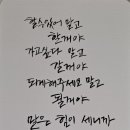 할수있어 말고
할꺼야
가고싶다 말고
갈꺼야
되게해주세요 말고
될꺼야
말은 힘이 세니까